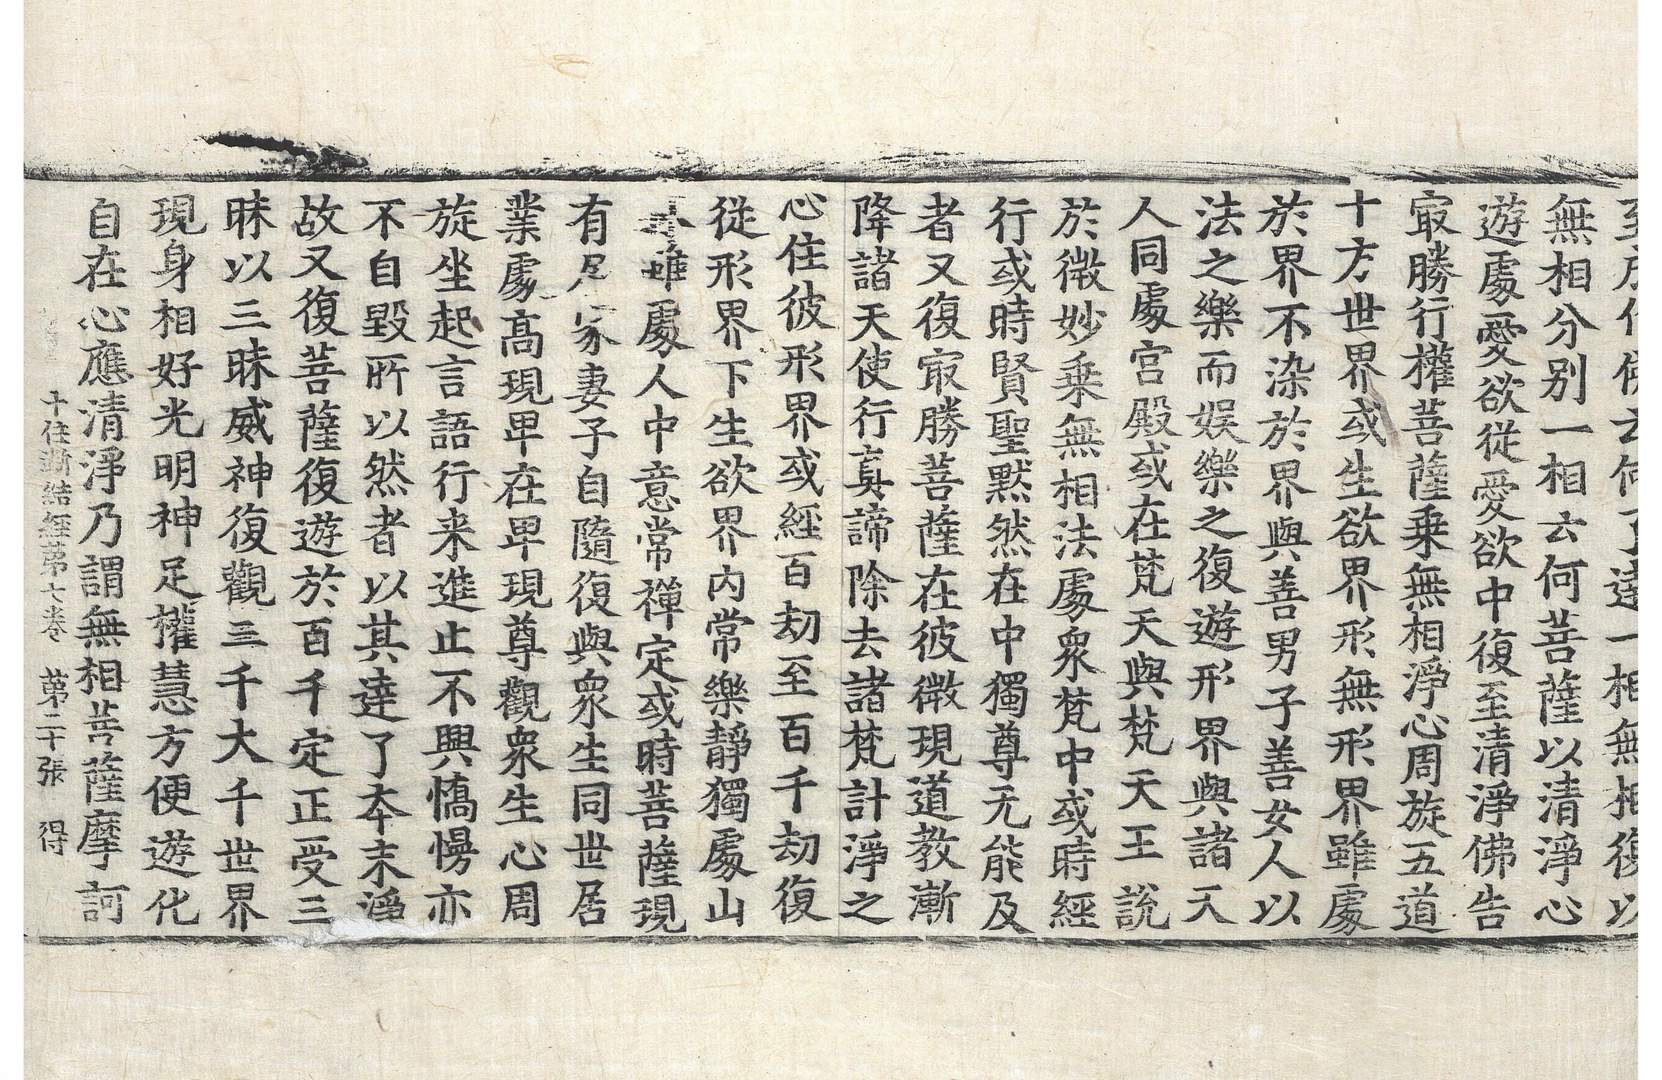 至所作佛云何了達一相無相復以
無相分別一相云何菩薩以清淨心
遊處愛欲從愛欲中復至清淨佛告
㝡勝行權菩薩乗無相淨心周旋五道
十方世界或生欲界形無形界雖處
於界不染於界與善男子善女人以
法之樂而娱樂之復遊形界與諸天
人同處宮殿或在梵天與梵天王說
於微妙乗無相法處衆梵中或時經
行或時賢聖默然在中獨尊无能及
者又復㝡勝菩薩在彼微現道教漸
降諸天使行真諦除去諸梵計淨之
心住彼形界或經百劫至百千劫復
從形界下生欲界内常樂靜獨處山
雖處人中意常禪定或時菩薩現
有居家妻子自隨復與衆生同世居
業處高現卑在卑現尊觀衆生心周
旋坐起言語行来進止不興憍慢亦
不自毀所以然者以其達了本末淨
故又復菩薩復遊於百千定正受三
昧以三昧威神復觀三千大千世界
現身相好光明神足權慧方便遊化
自在心應清淨乃謂無相菩薩摩訶
十住断結經苐七卷 苐二十張 得